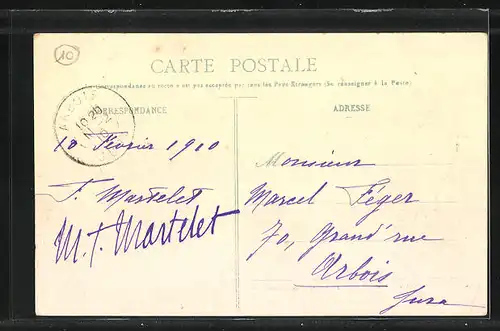 10
CARTE POSTALE
Correspondance au recto n'est pas acceptée par tous les Pays Étrangers (Se renseigner à la Poste)
CORRESPONDANCE
ADRESSE
ARBOIS
18 Février 1910
Monsieur
F. Martelet
Marcel Féger
M. F. Martelet
70, Grand'rue
Arbois
Jura